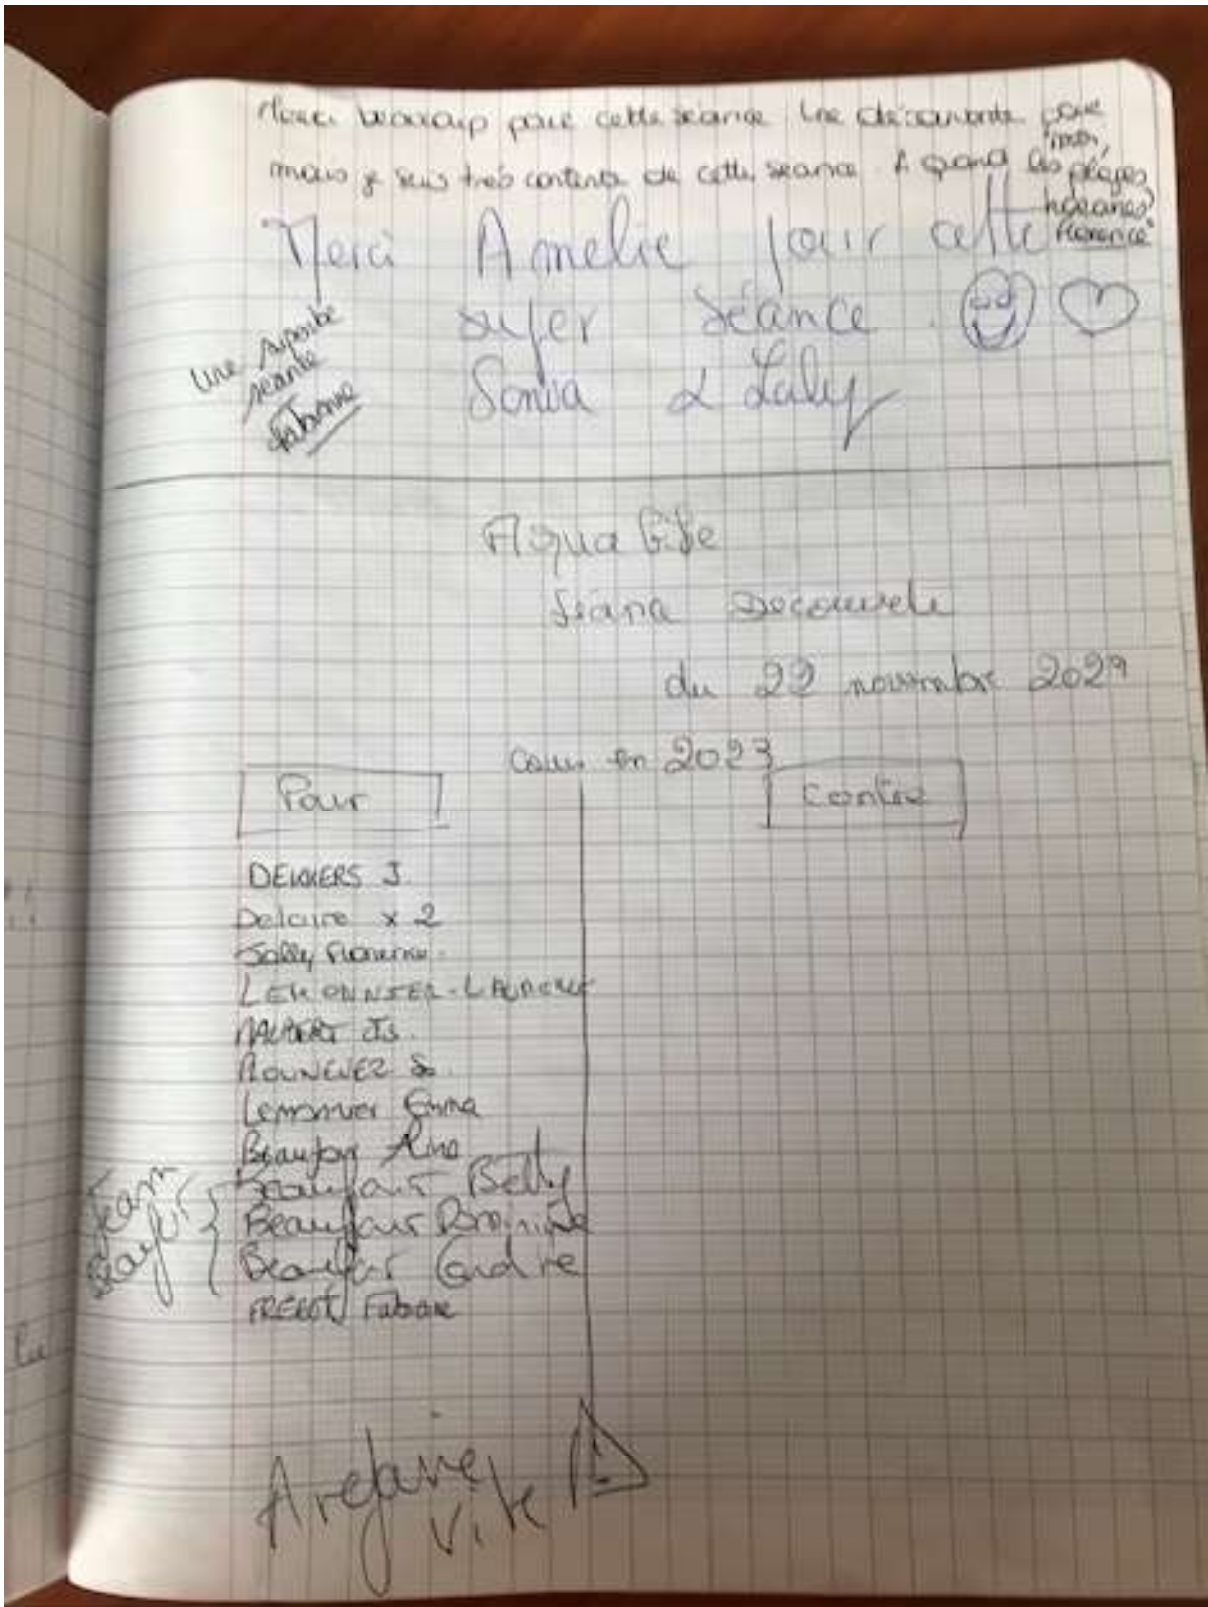 Merci beaucoup pour cette séance. Une découverte pour moi,
mais je suis très contente de cette séance. A quand les plages
horaires?
Florence
Merci Amelie pour cette
super séance
Sonia & Laly
Une superbe
séance
Fabienne
Aqua Bike
Séance Decouverte
du 22 novembre
Cours en 2023
Pour
Contre
DEKKERS J.
Delaire x 2
Jolly Florence.
LEMONNIER - LAURENCE
Lemonnier Emma
Beaufour
Beaufour Betty
Beaufour Dominique
Beaufour
Team
Fabiane
A refaire
Vite !